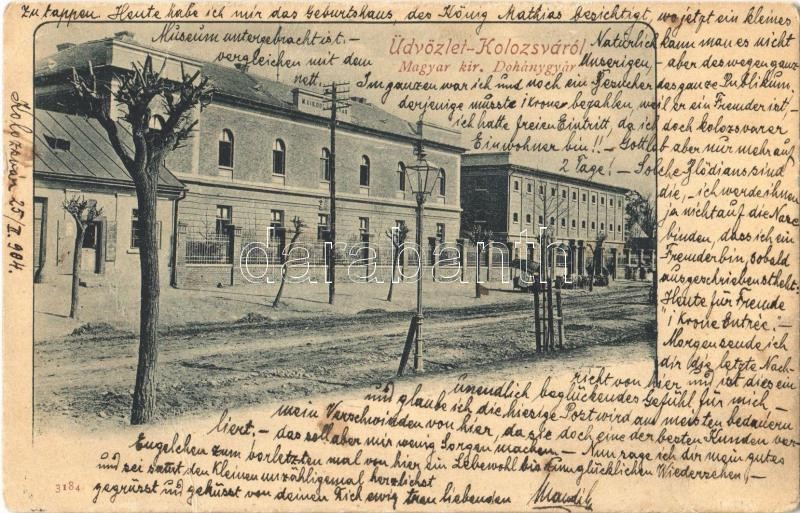 Zu tappen. Heute habe ich mir das Geburtshaus, des König Mathias besichtigt, wo jetzt ein kleines
Museum untergebracht ist. –
vergleichen mit dem
nett.
Üdvözlet-Kolozsvárról
Magyar kir. Dohánygyár
Natürlich kann man es nicht
unserigen, – aber deswegen ganz
Im ganzen war ich und noch ein Besucher das ganze Publikum,
derjenige müsste 1 Krone bezahlen, weil er ein Fremder ist! –
ich hatte freien Eintritt, da ich doch Kolozsvarer
Einwohner bin!! – Gottlob aber nur mehr auf
2 Tage! – Solche sind
die, – ich werde ihnen
ja nicht auf die Nase
binden, dass ich ein
Fremder bin, sobald
ausgeschrieben steht:
Heute für Fremde
"1 Krone Entrée. –
Morgen sende ich
dir die letzte Nach-
richt von hier und ist dies ein
unendlich beglückendes Gefühl für mich, –
und glaube ich, die hiesige Post wird am meisten bedauern
mein Verschwinden von hier, da sie doch eine der besten Kunden ver-
liert, – das soll aber mir wenig Sorgen machen. – Nun sage ich dir mein gutes
Engelchen zum vorletzten mal von hier ein Lebewohl bis zum glücklichen Wiedersehen, –
und sei samt den Kleinen unzähligemal herzlichst
gegrüsst und geküsst von deinen Dich ewig treu liebenden
Kolozsvár, 25/II 904.
3184
darabanth